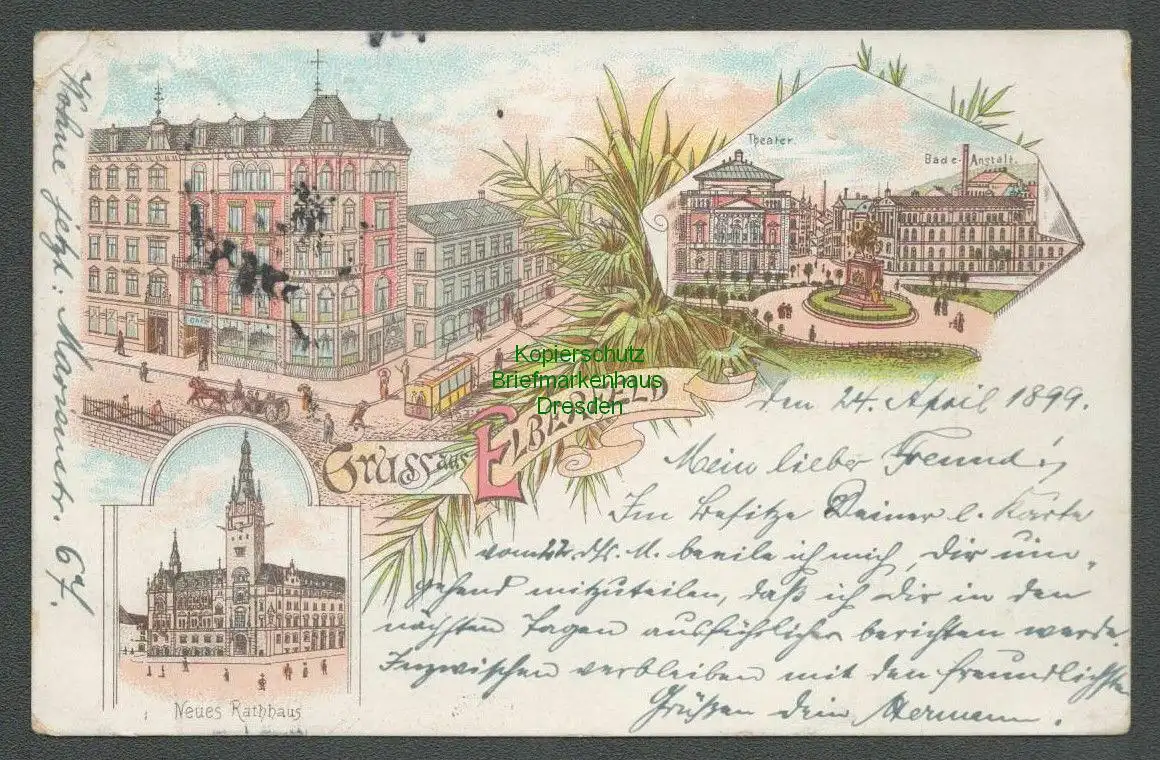 Theater.
Bade-Anstalt.
Kopierschutz
Briefmarkenhaus
Dresden
Gruss aus ELBERFELD
Neues Rathhaus
Wohne jetzt: Marienstr. 67.
den 24. April 1899.
Mein lieber Freund!
Im Besitze Deiner l. Karte
vom 22. ds. M. beeile ich mich, Dir um„
gehend mitzuteilen, daß ich Dir in den
nächsten Tagen ausführlicher berichten werde.
Inzwischen verbleibe mit den freundlichsten
Grüßen Dein Hermann.